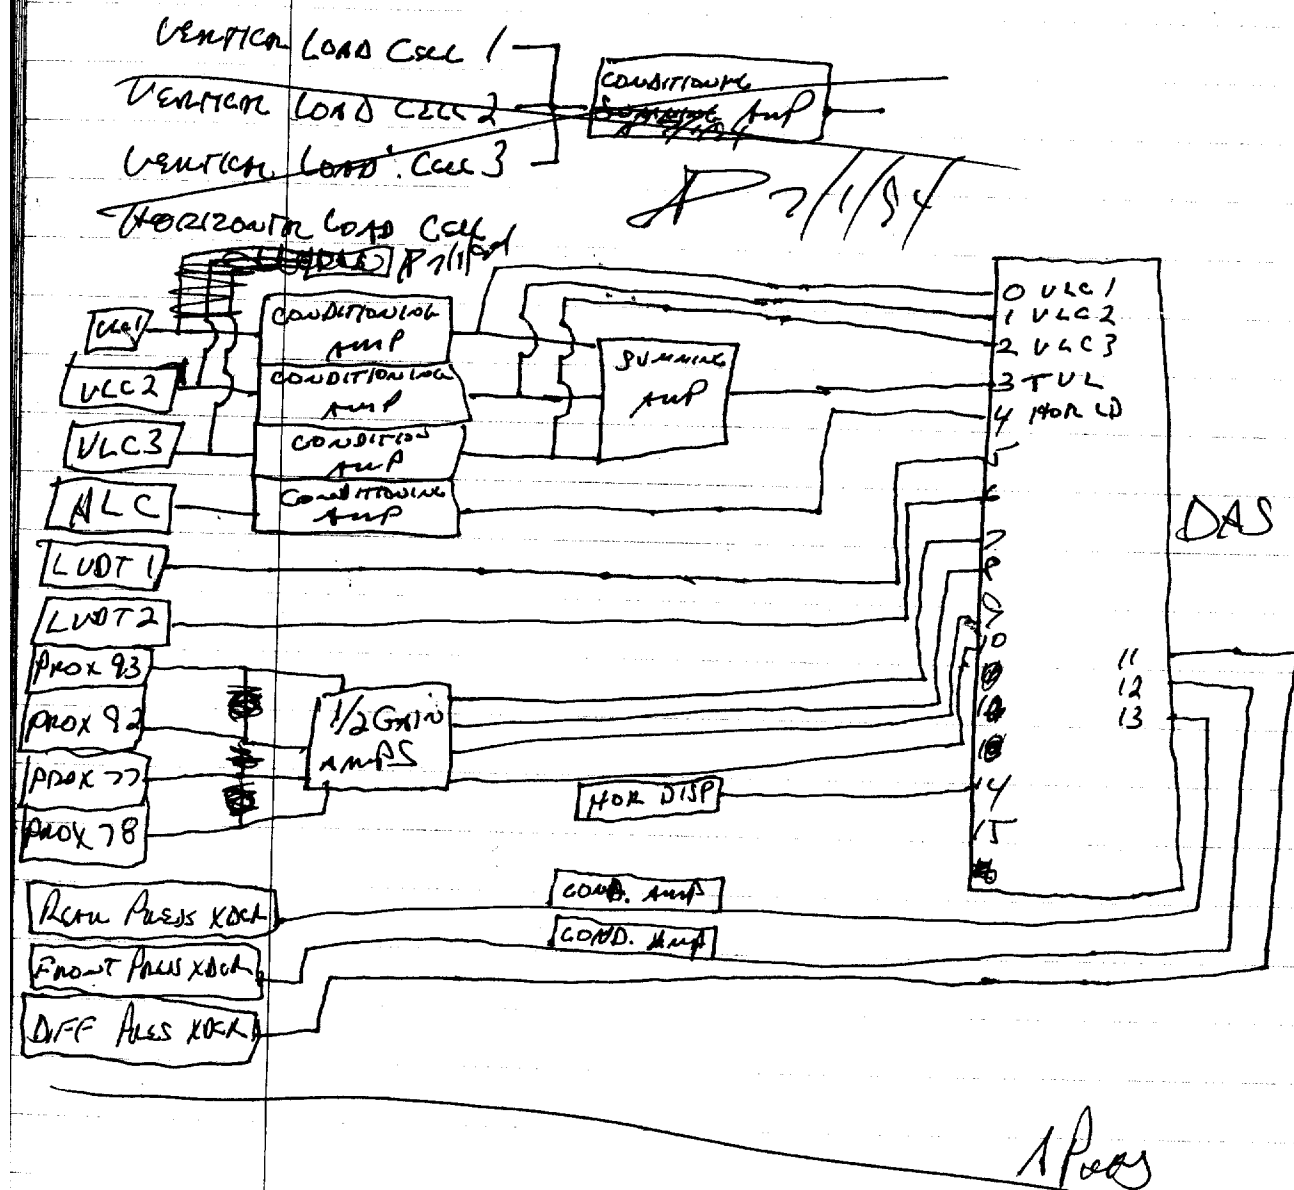 VERTICAL LOAD CELL 1
VERTICAL LOAD CELL 2
VERTICAL LOAD CELL 3
HORIZONTAL LOAD CELL
CONDITIONING
SUMMING AMP
7/1/94
VLC1
VLC2
VLC3
HLC
LVDT 1
LVDT 2
PROX 93
PROX 92
PROX 77
PROX 78
REAR PRESS XDCR
FRONT PRESS XDCR
DIFF PRESS XDCR
CONDITIONING
AMP
CONDITIONING
AMP
CONDITION
AMP
CONDITIONING
AMP
SUMMING
AMP
1/2 GAIN
AMPS
HOR DISP
COND. AMP
COND. AMP
0 VLC1
1 VLC2
2 VLC3
3 TVL
4 HOR LD
5
6
7
8
9
10
11
12
13
14
15
DAS